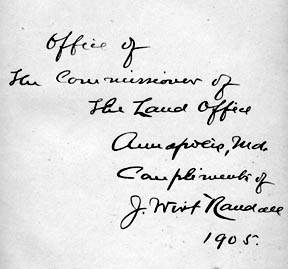 Office of
The Commissioner of
The Land Office
Annapolis, Md.
Compliments of
J. Wirt Randall
1905.